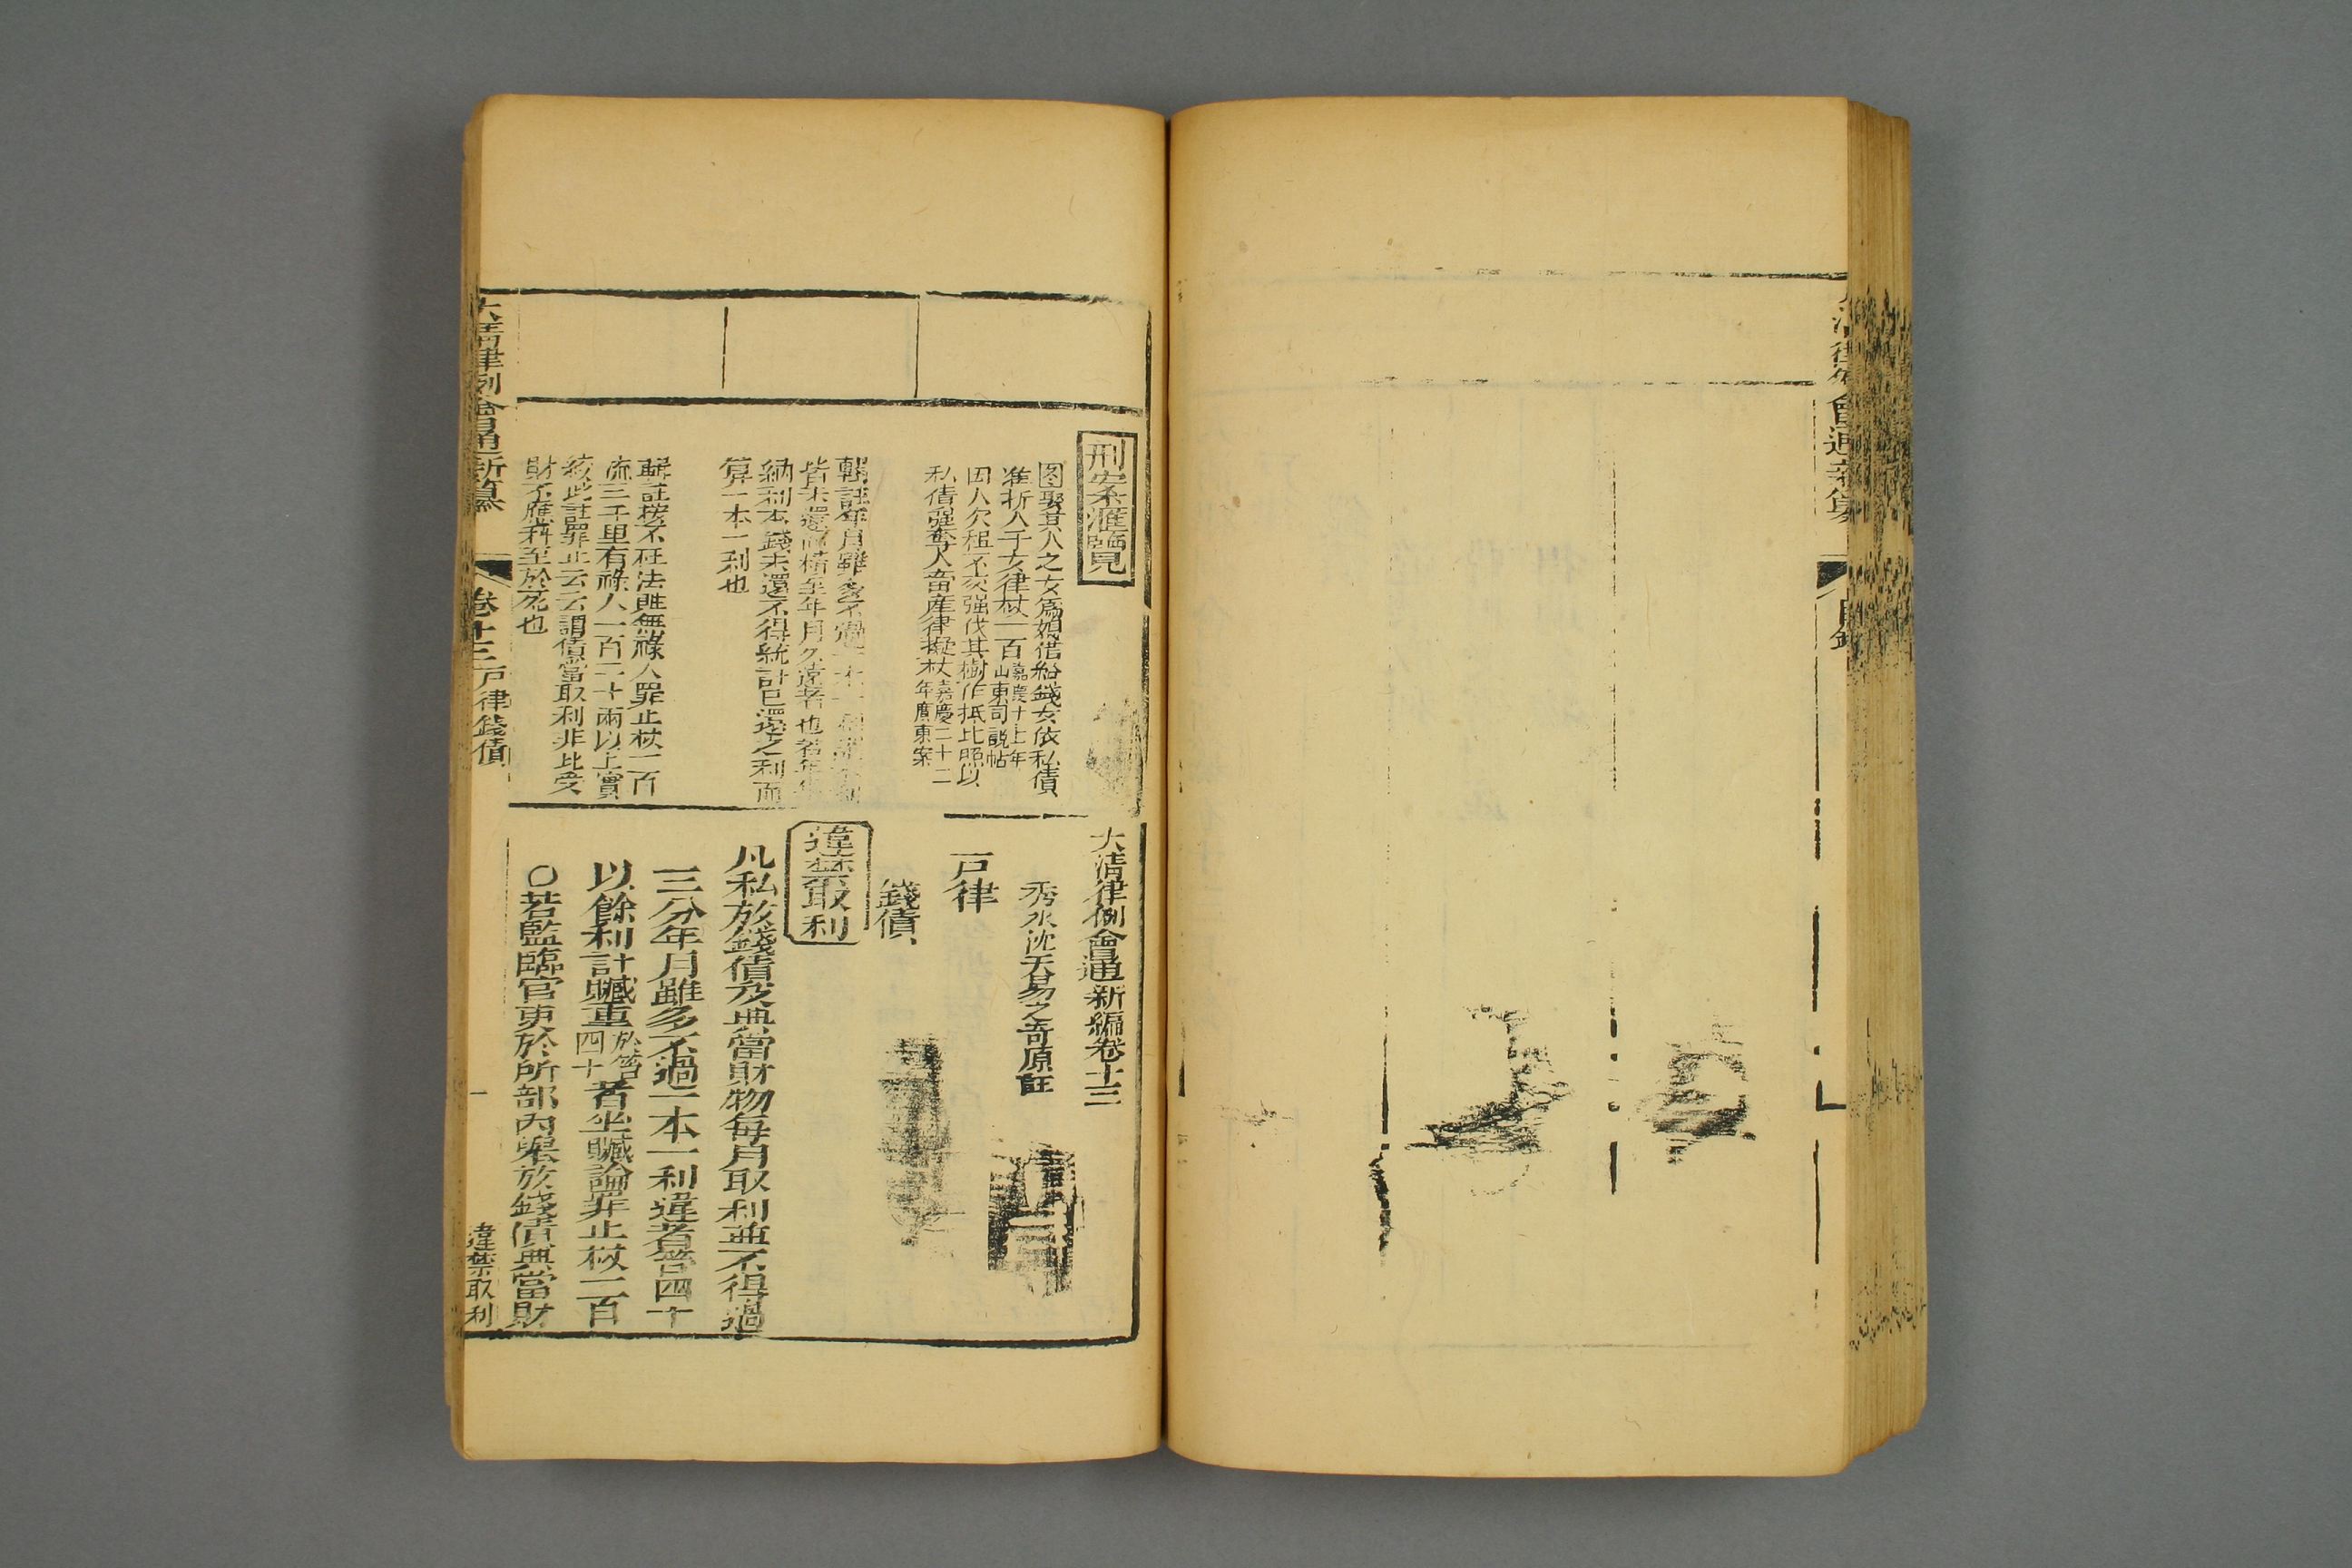 目錄
刑案滙覽
图娶其人之女爲媳借給錢文依私債
准折人子女律杖一百嘉慶十七年山東司說帖
因人欠租不交强伐其樹作抵比照以
私債强奪人畜產律擬杖嘉慶二十二年廣東案
輯註年月雖多不過一本一利
皆未還而積至年月久遠者也若年年
納利本錢未還不得統計已還之利而
算一本一利也
輯註按不枉法贓無祿人罪止杖一百
流三千里有祿人一百二十兩以上實
絞此註罪止云云謂債當取利非比受
財不應科至於死也
大清律例會通新編卷十三
秀水沈天易之奇原註
戶律
錢債
違禁取利
凡私放錢債及典當財物每月取利並不得過
三分年月雖多不過一本一利違者笞四十
以餘利計贓重於笞四十者坐贓論罪止杖一百
○若監臨官吏於所部內舉放錢債典當財
大清律例會通新纂
卷十三戶律錢債
一
違禁取利